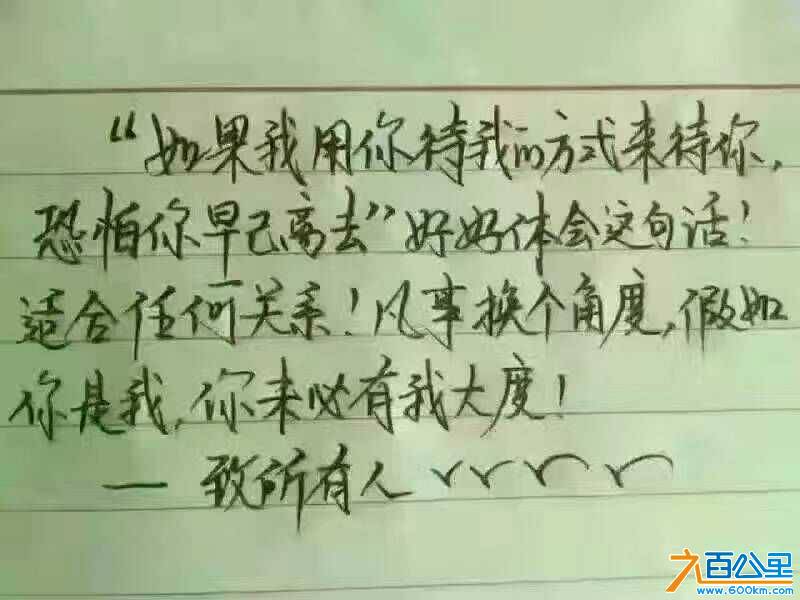 “如果我用你待我的方式来待你,
恐怕你早已离去”好好体会这句话!
适合任何关系!凡事换个角度,假如
你是我,你未必有我大度!
— 致所有人
九百公里
www.600km.com